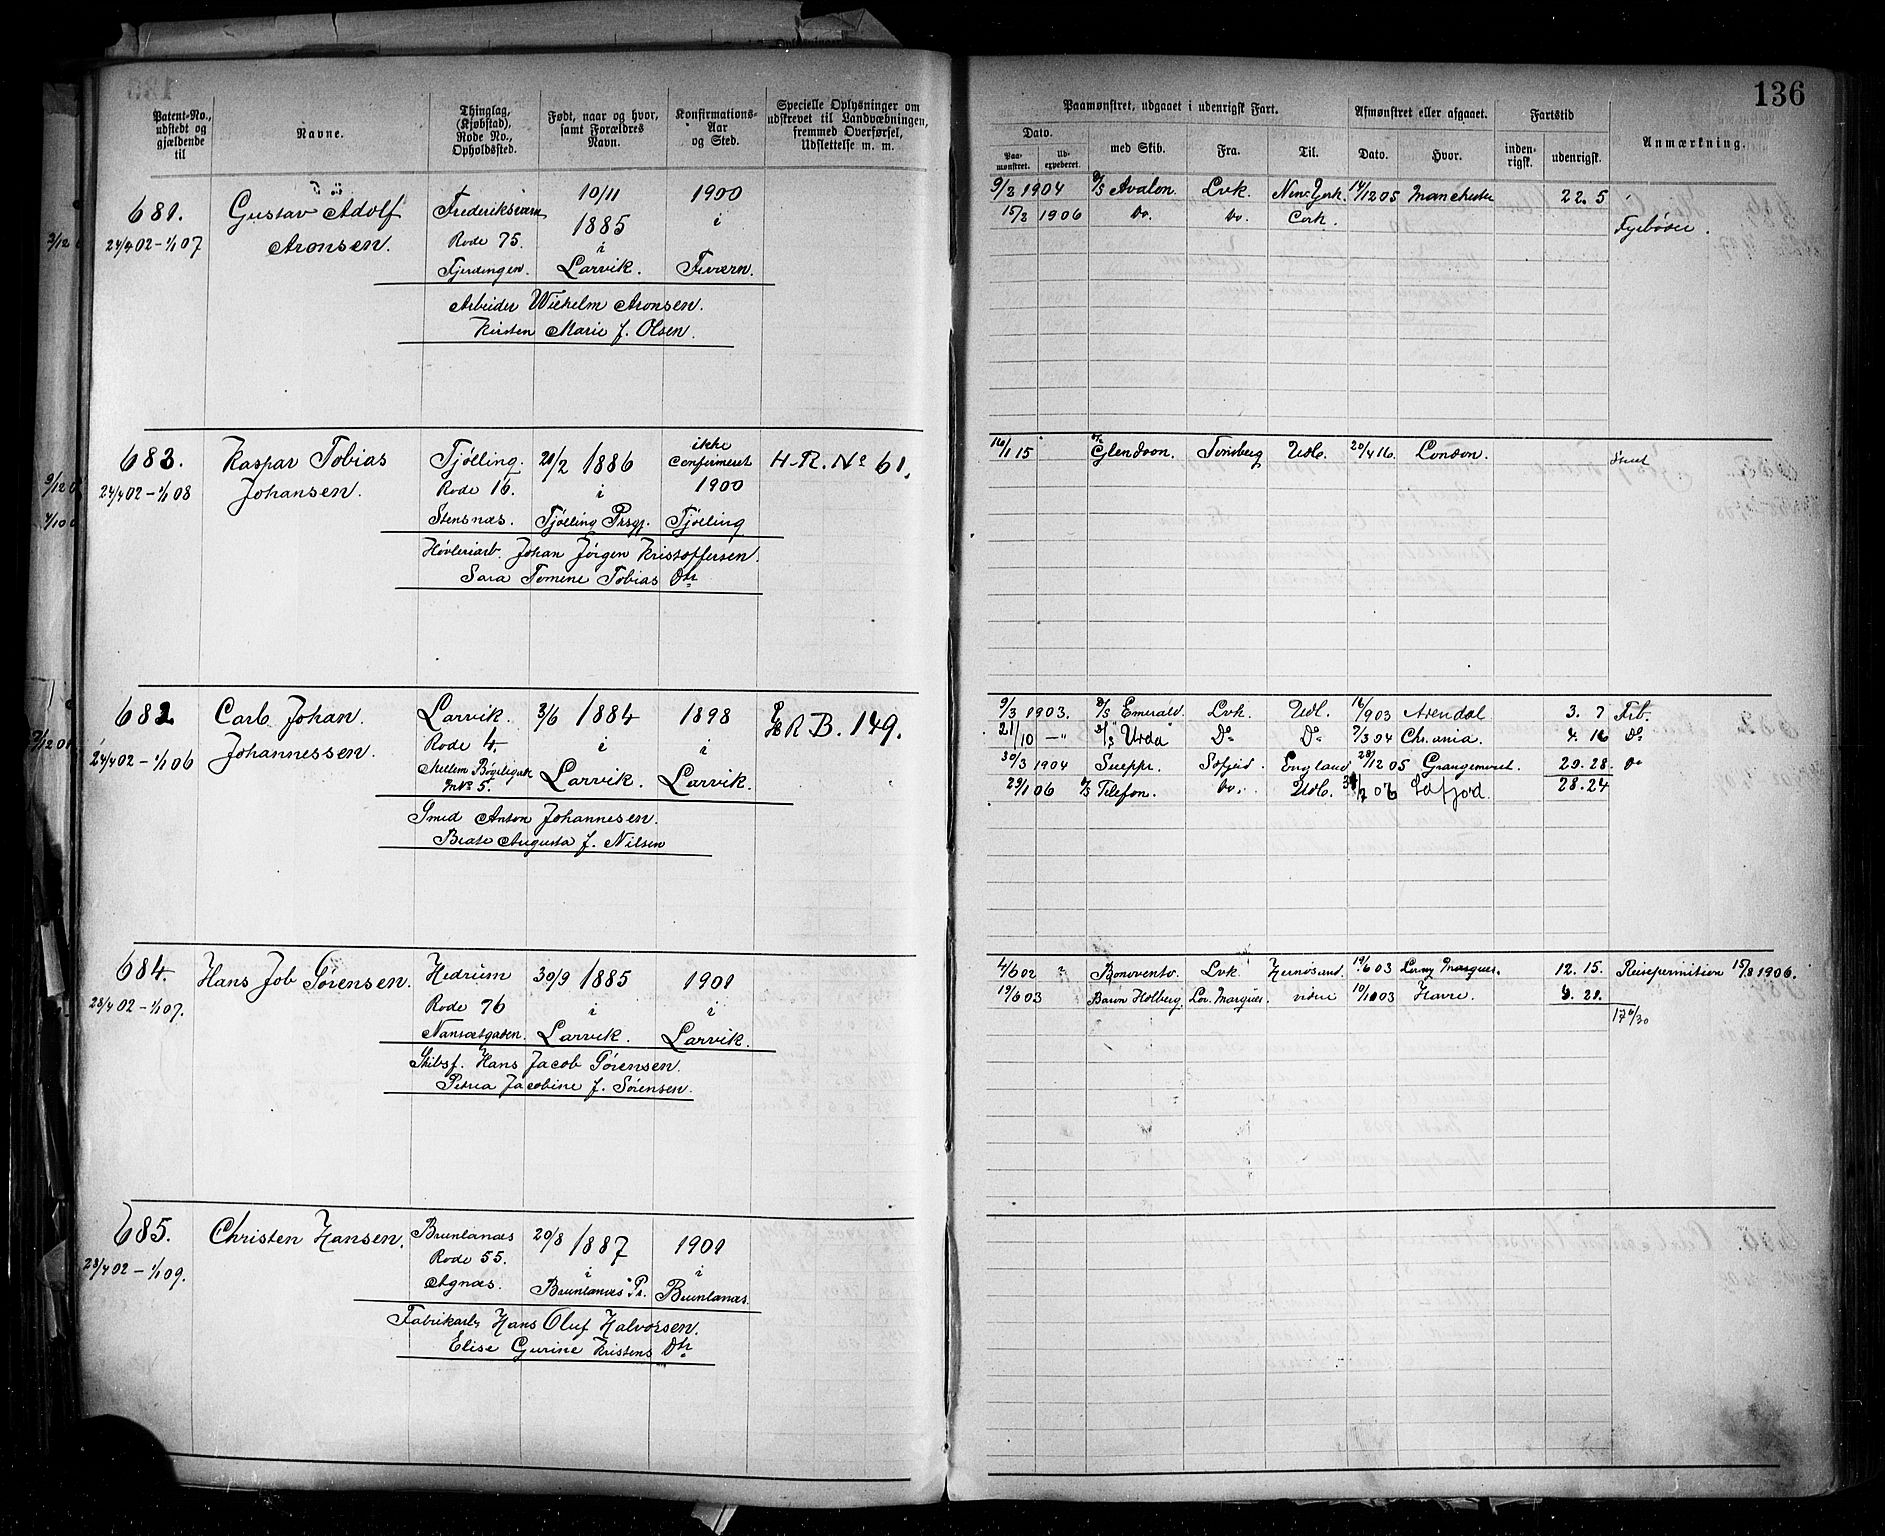 136
Patent-No., udstedt og gjældende til
Navne.
Thinglag, (Kjøbstad), Rode No., Opholdssted.
Født, naar og hvor, samt Forældres Navn.
Konfirmations-Aar og Sted.
Specielle Oplysninger om udskrevet til Landværnningen, fremmed Overførsel, Udslettelse m. m.
Paamønstret, udgaaet i udenrigsk Fart.
Afmønstret eller afgaaet.
Fartstid
Dato.
Paa-mønstret.
Ud-expederet.
med Skib.
Fra.
Til.
Dato.
Hvor.
inden-rigsk.
udenrigsk.
Anmærkning.
681. Gustav Adolf Fredriksværn 10/11 1900
24/4 02 - 1/1 07 Aronsen. Rode 75. 1885 i
Fjerdingen. i Larvik. Fr.værn.
Arbeider Wilhelm Aronsen.
Kirsten Marie f. Olsen.
9/2 1904 D/S Avalon. Lvk. New York. 14/12 05 Manchester 22. 5
15/2 1906 Do. Do. Cork. Fyrbøder.
683. Kaspar Tobias Tjølling. 21/2 1886 ikke confirmeret H.R. No 61.
24/4 02 - 1/1 08 Johansen. Rode 16. i 1900
Stensnæs. Tjølling Prsgj. Tjølling
Høvleriarb. Johan Jørgen Kristoffersen.
Sara Tomene Tobias Dtr
16/1 15 Glendoon. Tønsberg Udl. 20/4 16. London.
682 Carl Johan. Larvik. 3/6 1884 1898 HR B. 149.
24/4 02 - 1/1 06 Johannessen. Rode 4. i i
Mellem Bøgeligate No 5. Larvik. Larvik.
Smed Anton Johannesen.
Beate Augusta f. Nilsen
9/3 1903. D/S Emerald. Lvk. Udl. 16/9 03 Arendal 3. 7 Frb.
21/10 -"- D/S "Urda" Do Do 7/3 04 Chr.ania. 4. 16 Do
30/3 1904 Sofjrd. England 28/12 05 Grangemouth. 20. 28. Do
29/1 06 D/S Telefon. Do. Udl. Sofjord. 28. 24
684. Hans Job Sørensen. Hedrum 30/9 1885 1901
28/4 02 - 1/1 07. Rode 76 i i
Nansetgaden. Larvik. Larvik.
Skibsf. Hans Jacob Sørensen.
Petrea Jacobine f. Sørensen.
4/6 02 Bonovento. Lvk. Hernøsand. 19/6 03 Lorenz Marques. 12. 15. Reisepermition 15/8 1906.
19/6 03 Baron Holberg. Lor. Marques. videre 10/11 03 Havre. 4. 21.
685. Christen Hansen. Brunlanæs 20/8 1887 1901
28/4 02 - 1/1 09. Rode 55. i i
Agnæs. Brunlanæs Pr. Brunlanæs.
Fabrikarb. Hans Oluf Halvorsen.
Elise Gurine Kristens Dtr